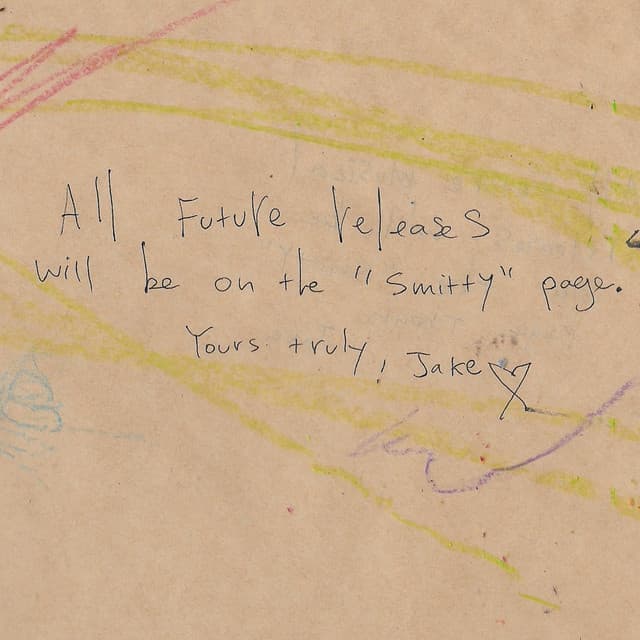 All Future releases
will be on the "Smitty" page.
Yours truly, Jake